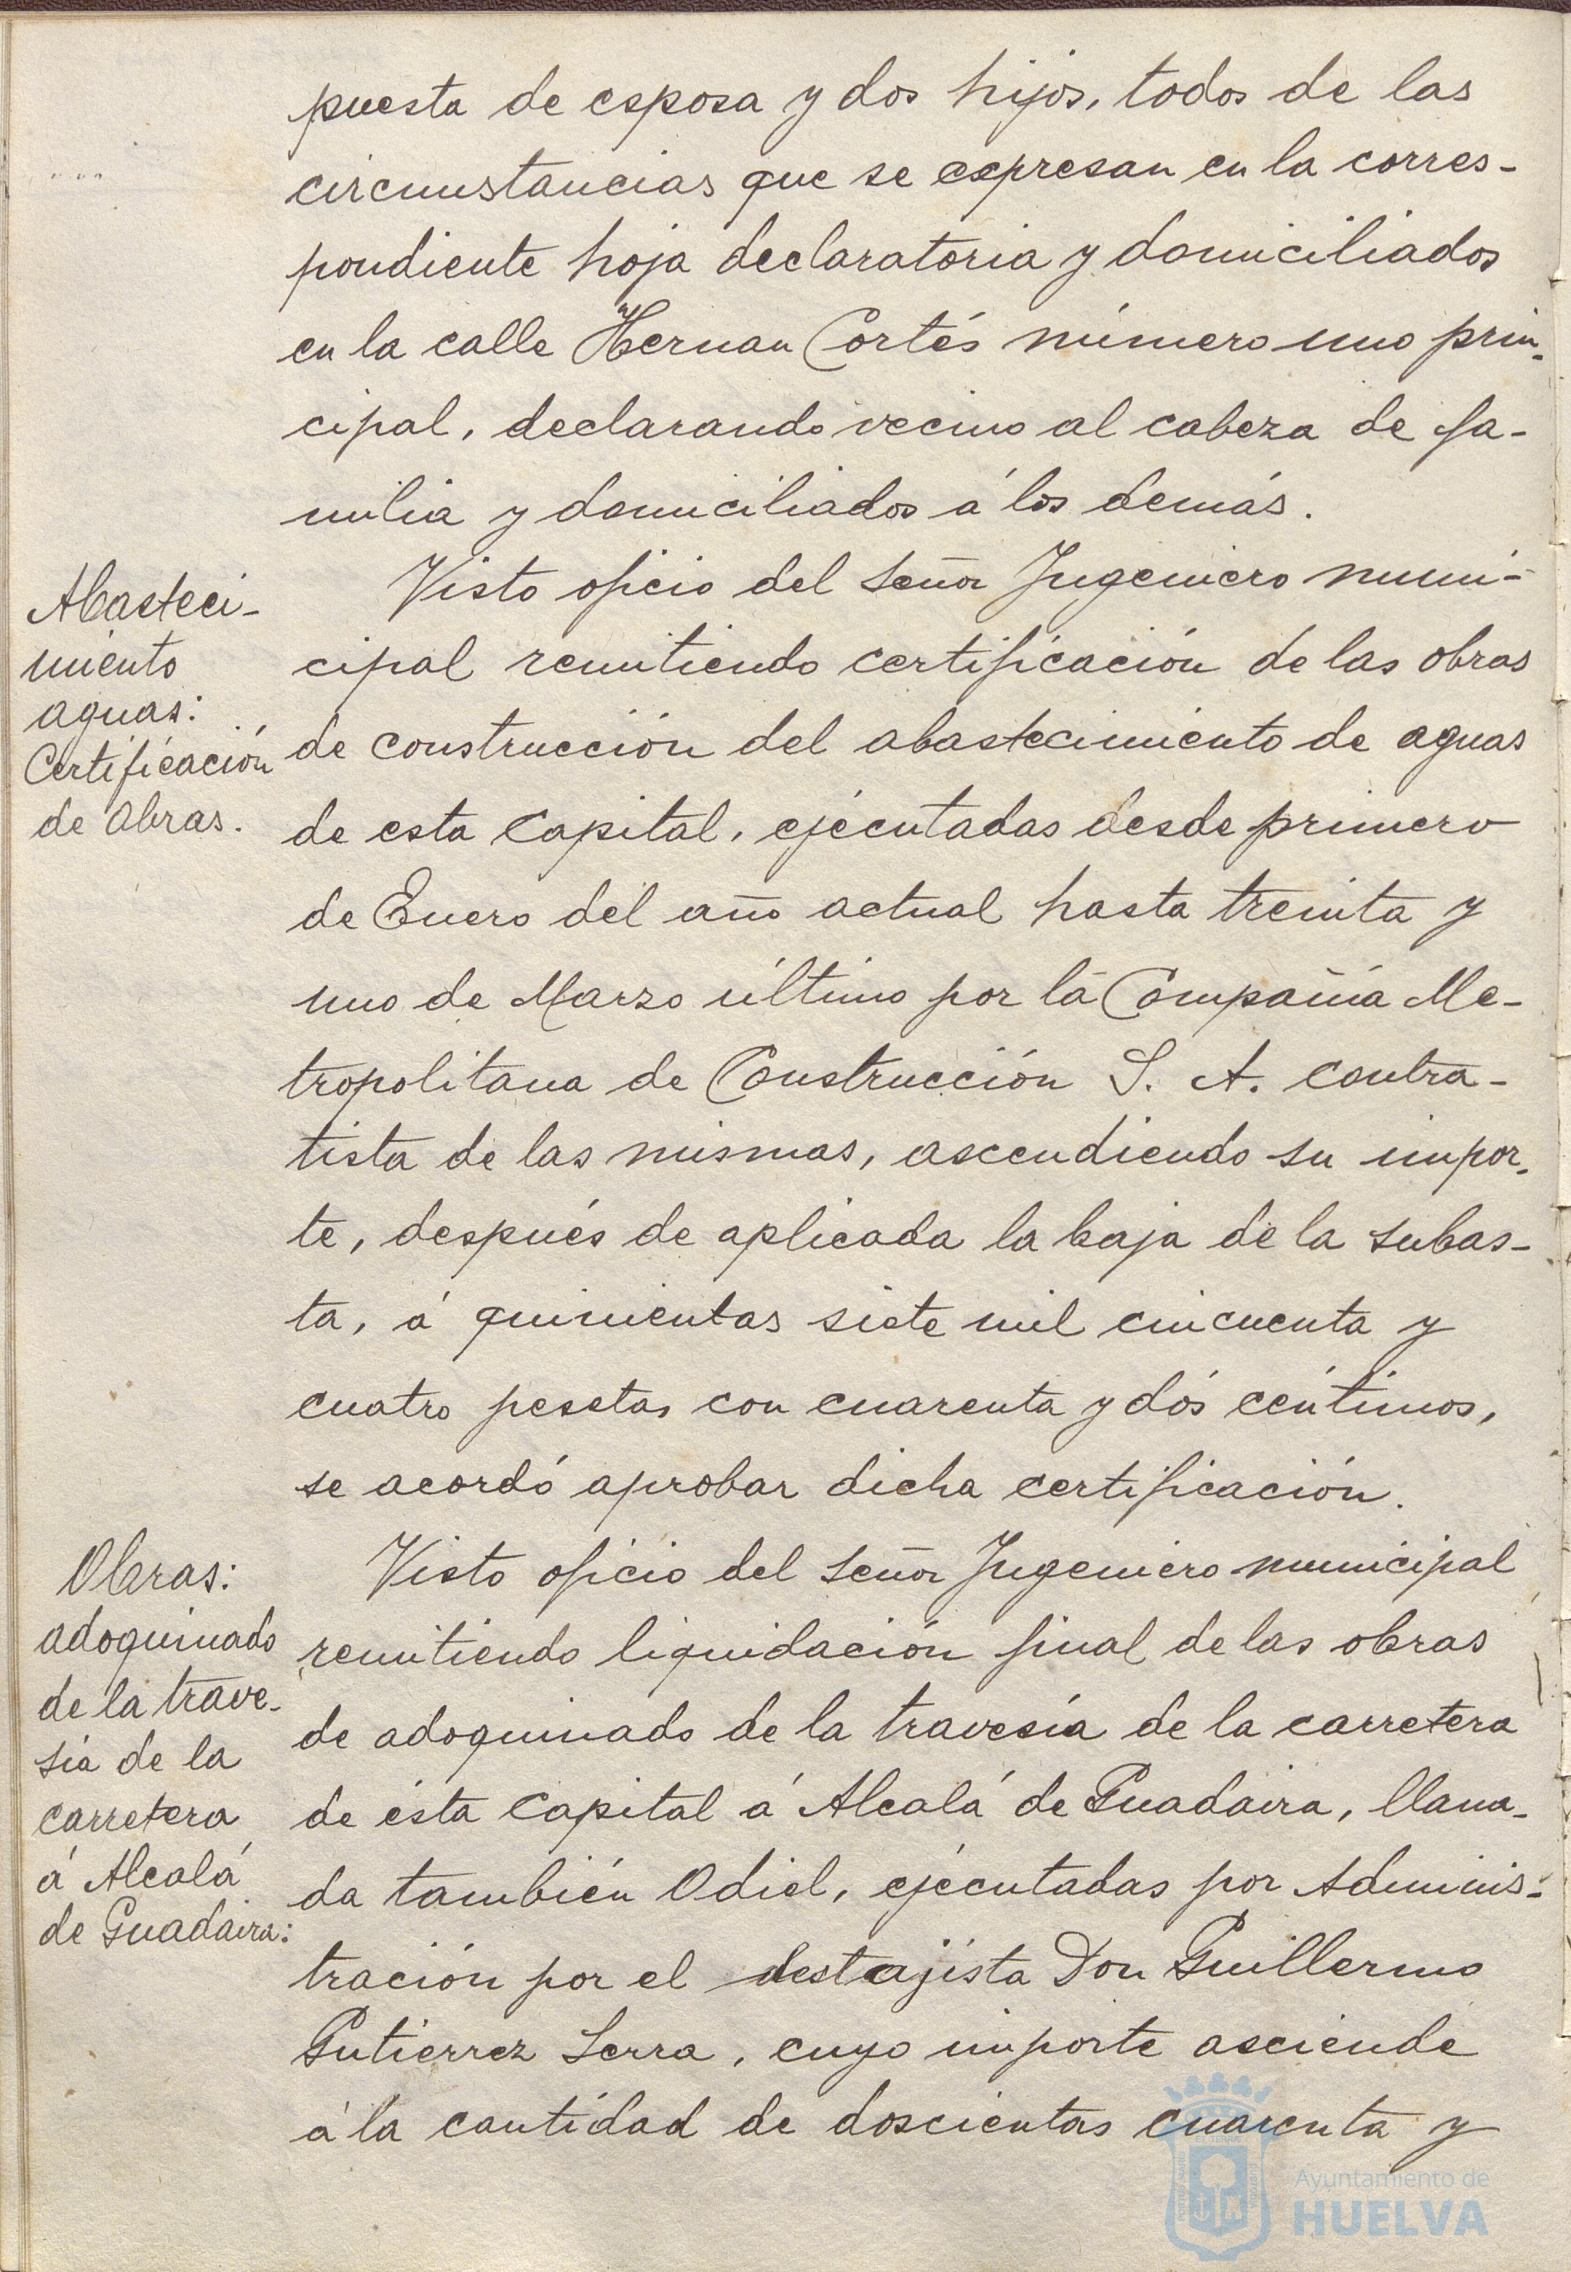 puesta de esposa y dos hijos, todos de las
circunstancias que se expresan en la corres-
pondiente hoja declaratoria y domiciliados
en la calle Hernan Cortés número uno prin-
cipal, declarando vecino al cabeza de fa-
milia y domiciliados á los demás.
Abasteci-
miento
aguas:
Certificación
de obras.
Visto oficio del Señor Ingeniero muni-
cipal remitiendo certificación de las obras
de construcción del abastecimiento de aguas
de esta Capital, ejecutadas desde primero
de Enero del año actual hasta treinta y
uno de Marzo último por la Compañia Me-
tropolitana de Construcción S. A. contra-
tista de las mismas, ascendiendo su impor-
te, después de aplicada la baja de la subas-
ta, á quinientas siete mil cincuenta y
cuatro pesetas con cuarenta y dós céntimos,
se acordó aprobar dicha certificación.
Obras:
adoquinado
de la trave-
sia de la
carretera
á Alcalá
de Guadaira:
Visto oficio del Señor Ingeniero municipal
remitiendo liquidación final de las obras
de adoquinado de la travesía de la carretera
de ésta Capital á Alcalá de Guadaira, llama-
da también Odiel, ejecutadas por Adminis-
tración por el destajista Don Guillermo
Gutierrez Serra, cuyo importe asciende
á la cantidad de doscientas cuarenta y
Ayuntamiento de
HUELVA